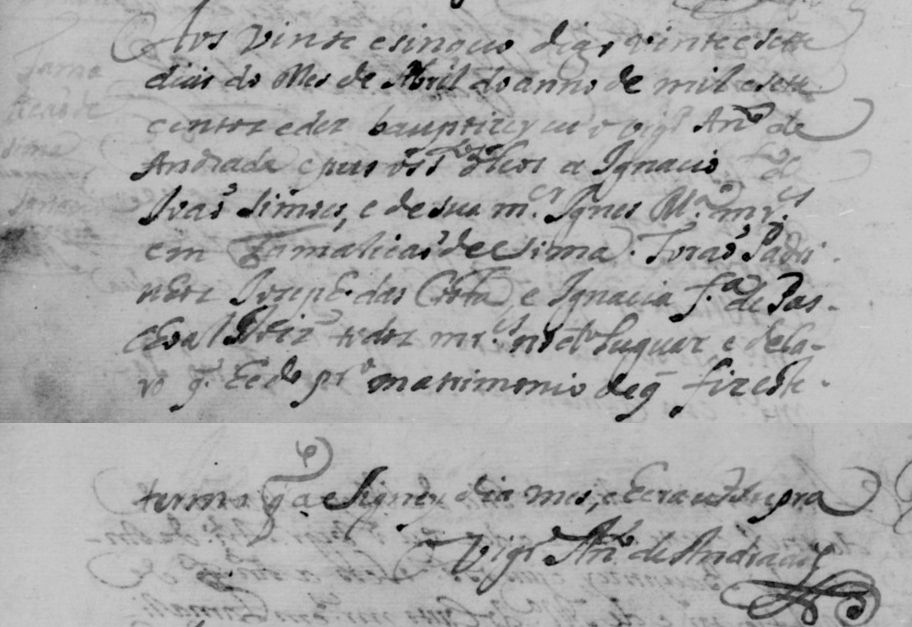 Aos vinte esinquo digo vinte e sette
dias do Mes de Abril do anno de mil e sette
centos e dez bauptizey eu o vigrº Anº de
Andrada e pus os stos oleos a Ignacio fº de
Joaõ Simois, e de sua m.er Ignes M.ª mr.es
em Gamalicas de sima. foraõ Padri-
nhos Joseph das Costa e Ignacia f.ª de Pas-
choal todos mr.es no dº luguar e decla-
ro q. he do prº matrimonio de q fiz este
termo q a signey dia mes, e Era ut supra
Vigrº Anº de Andrada